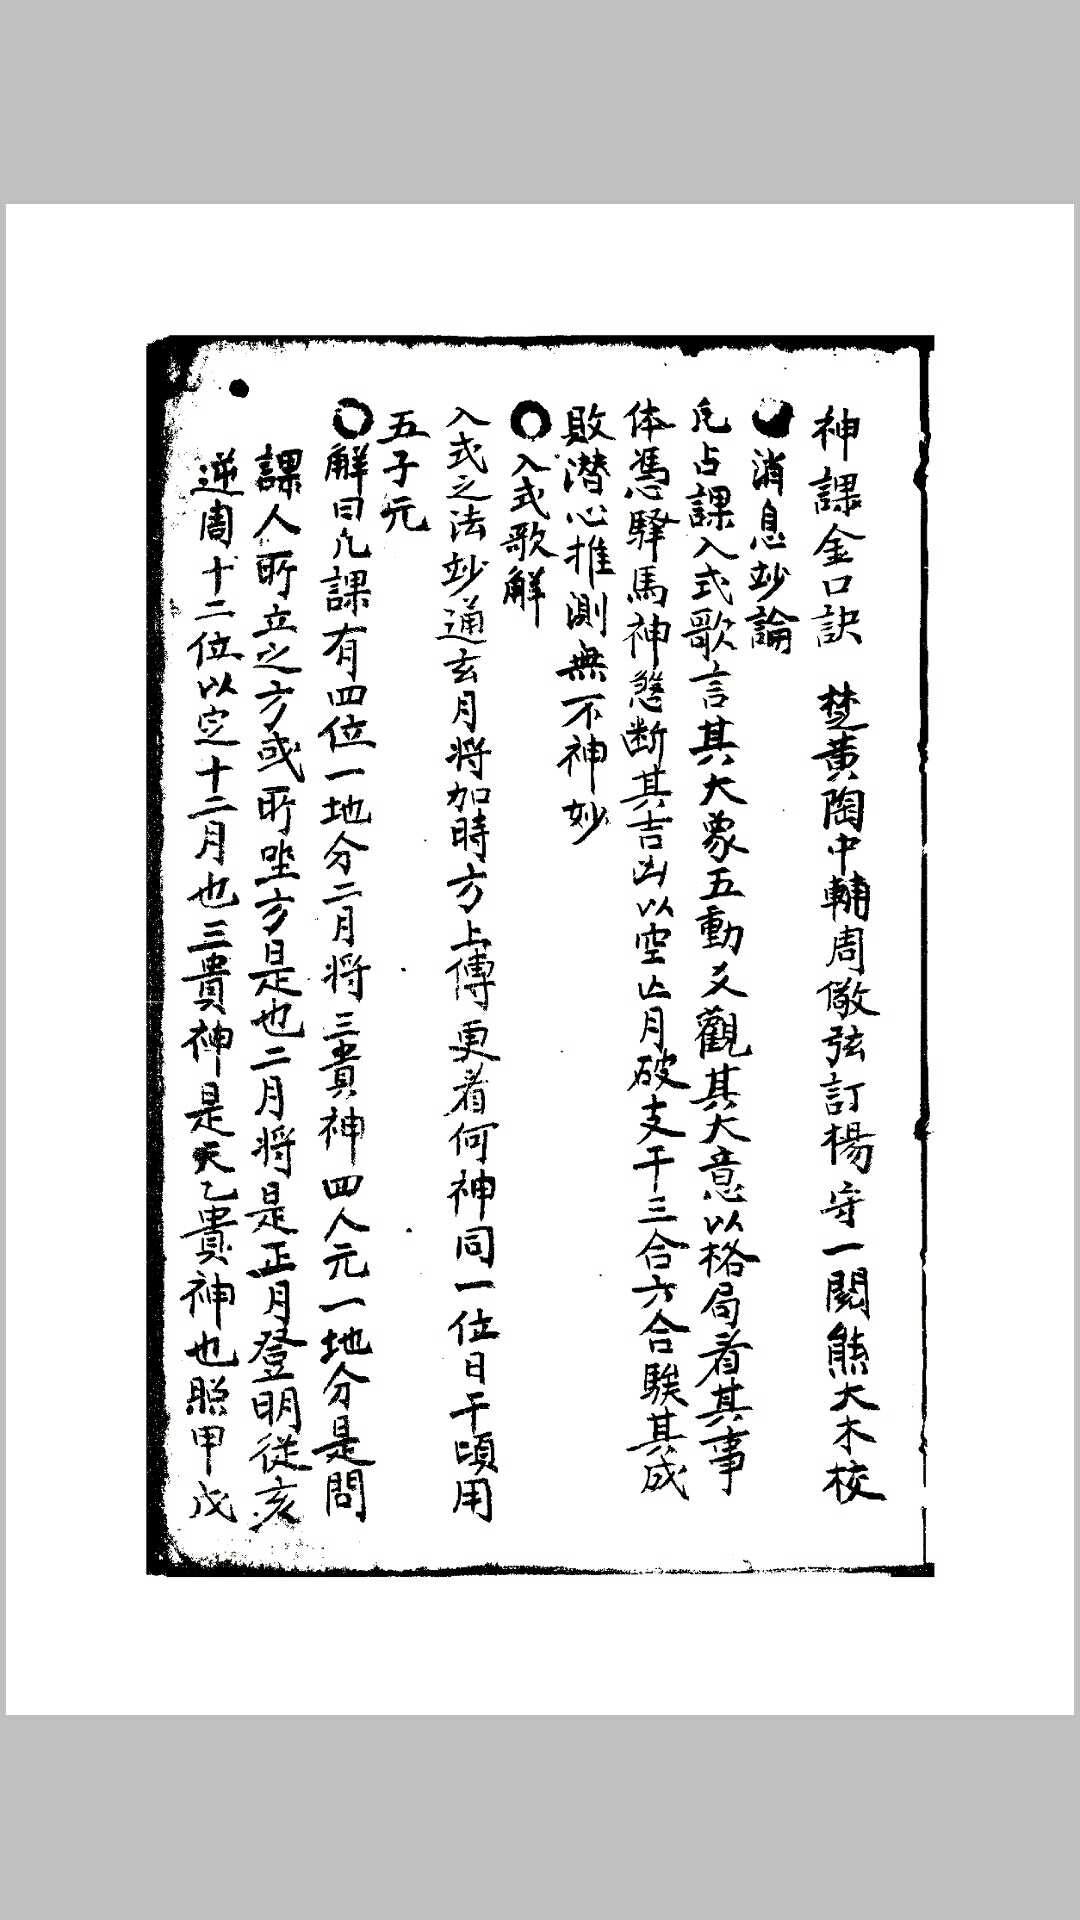 神課金口訣　楚黄陶中輔周儆弦訂楊守一閱熊大木校
消息玅論
凡占課入式歌言其大象五動爻觀其大意以格局看其事
体馮驛馬神煞断其吉凶以空亾月破支干三合六合騐其成
敗潜心推測無不神妙
入式歌解
入式之法玅通玄月將加時方上傳更看何神同一位日干頃用
五子元
解曰凡課有四位一地分二月將三貴神四人元一地分是問
課人所立之方或所坐方是也二月將是正月登明從亥
逆周十二位以定十二月也三貴神是天乙貴神也照甲戊